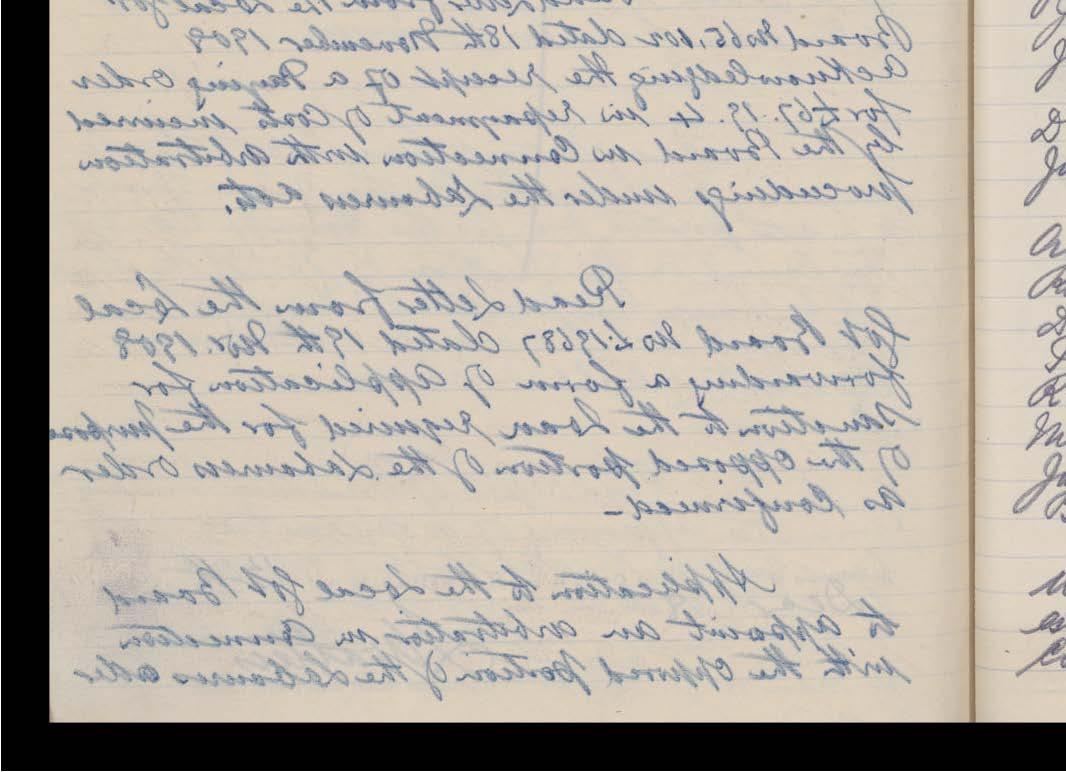 Read Letter from the Local Govt
Board No 65,402 dated 18th November 1908
acknowledging the receipt of a Paying Order
for £67. 15. 4 in repayment of Costs incurred
by the Board in Connection with arbitration
proceedings under the Labourers Acts.
Read Letter from the Local
Govt Board No L.19687 dated 19th Nov. 1908
forwarding a form of application for
Sanction to the Loan required for the purpose
of the opposed portion of the Labourers Order
as Confirmed —
Application to the Local Govt Board
to appoint an arbitrator in Connection
with the Opposed portion of the Labourers